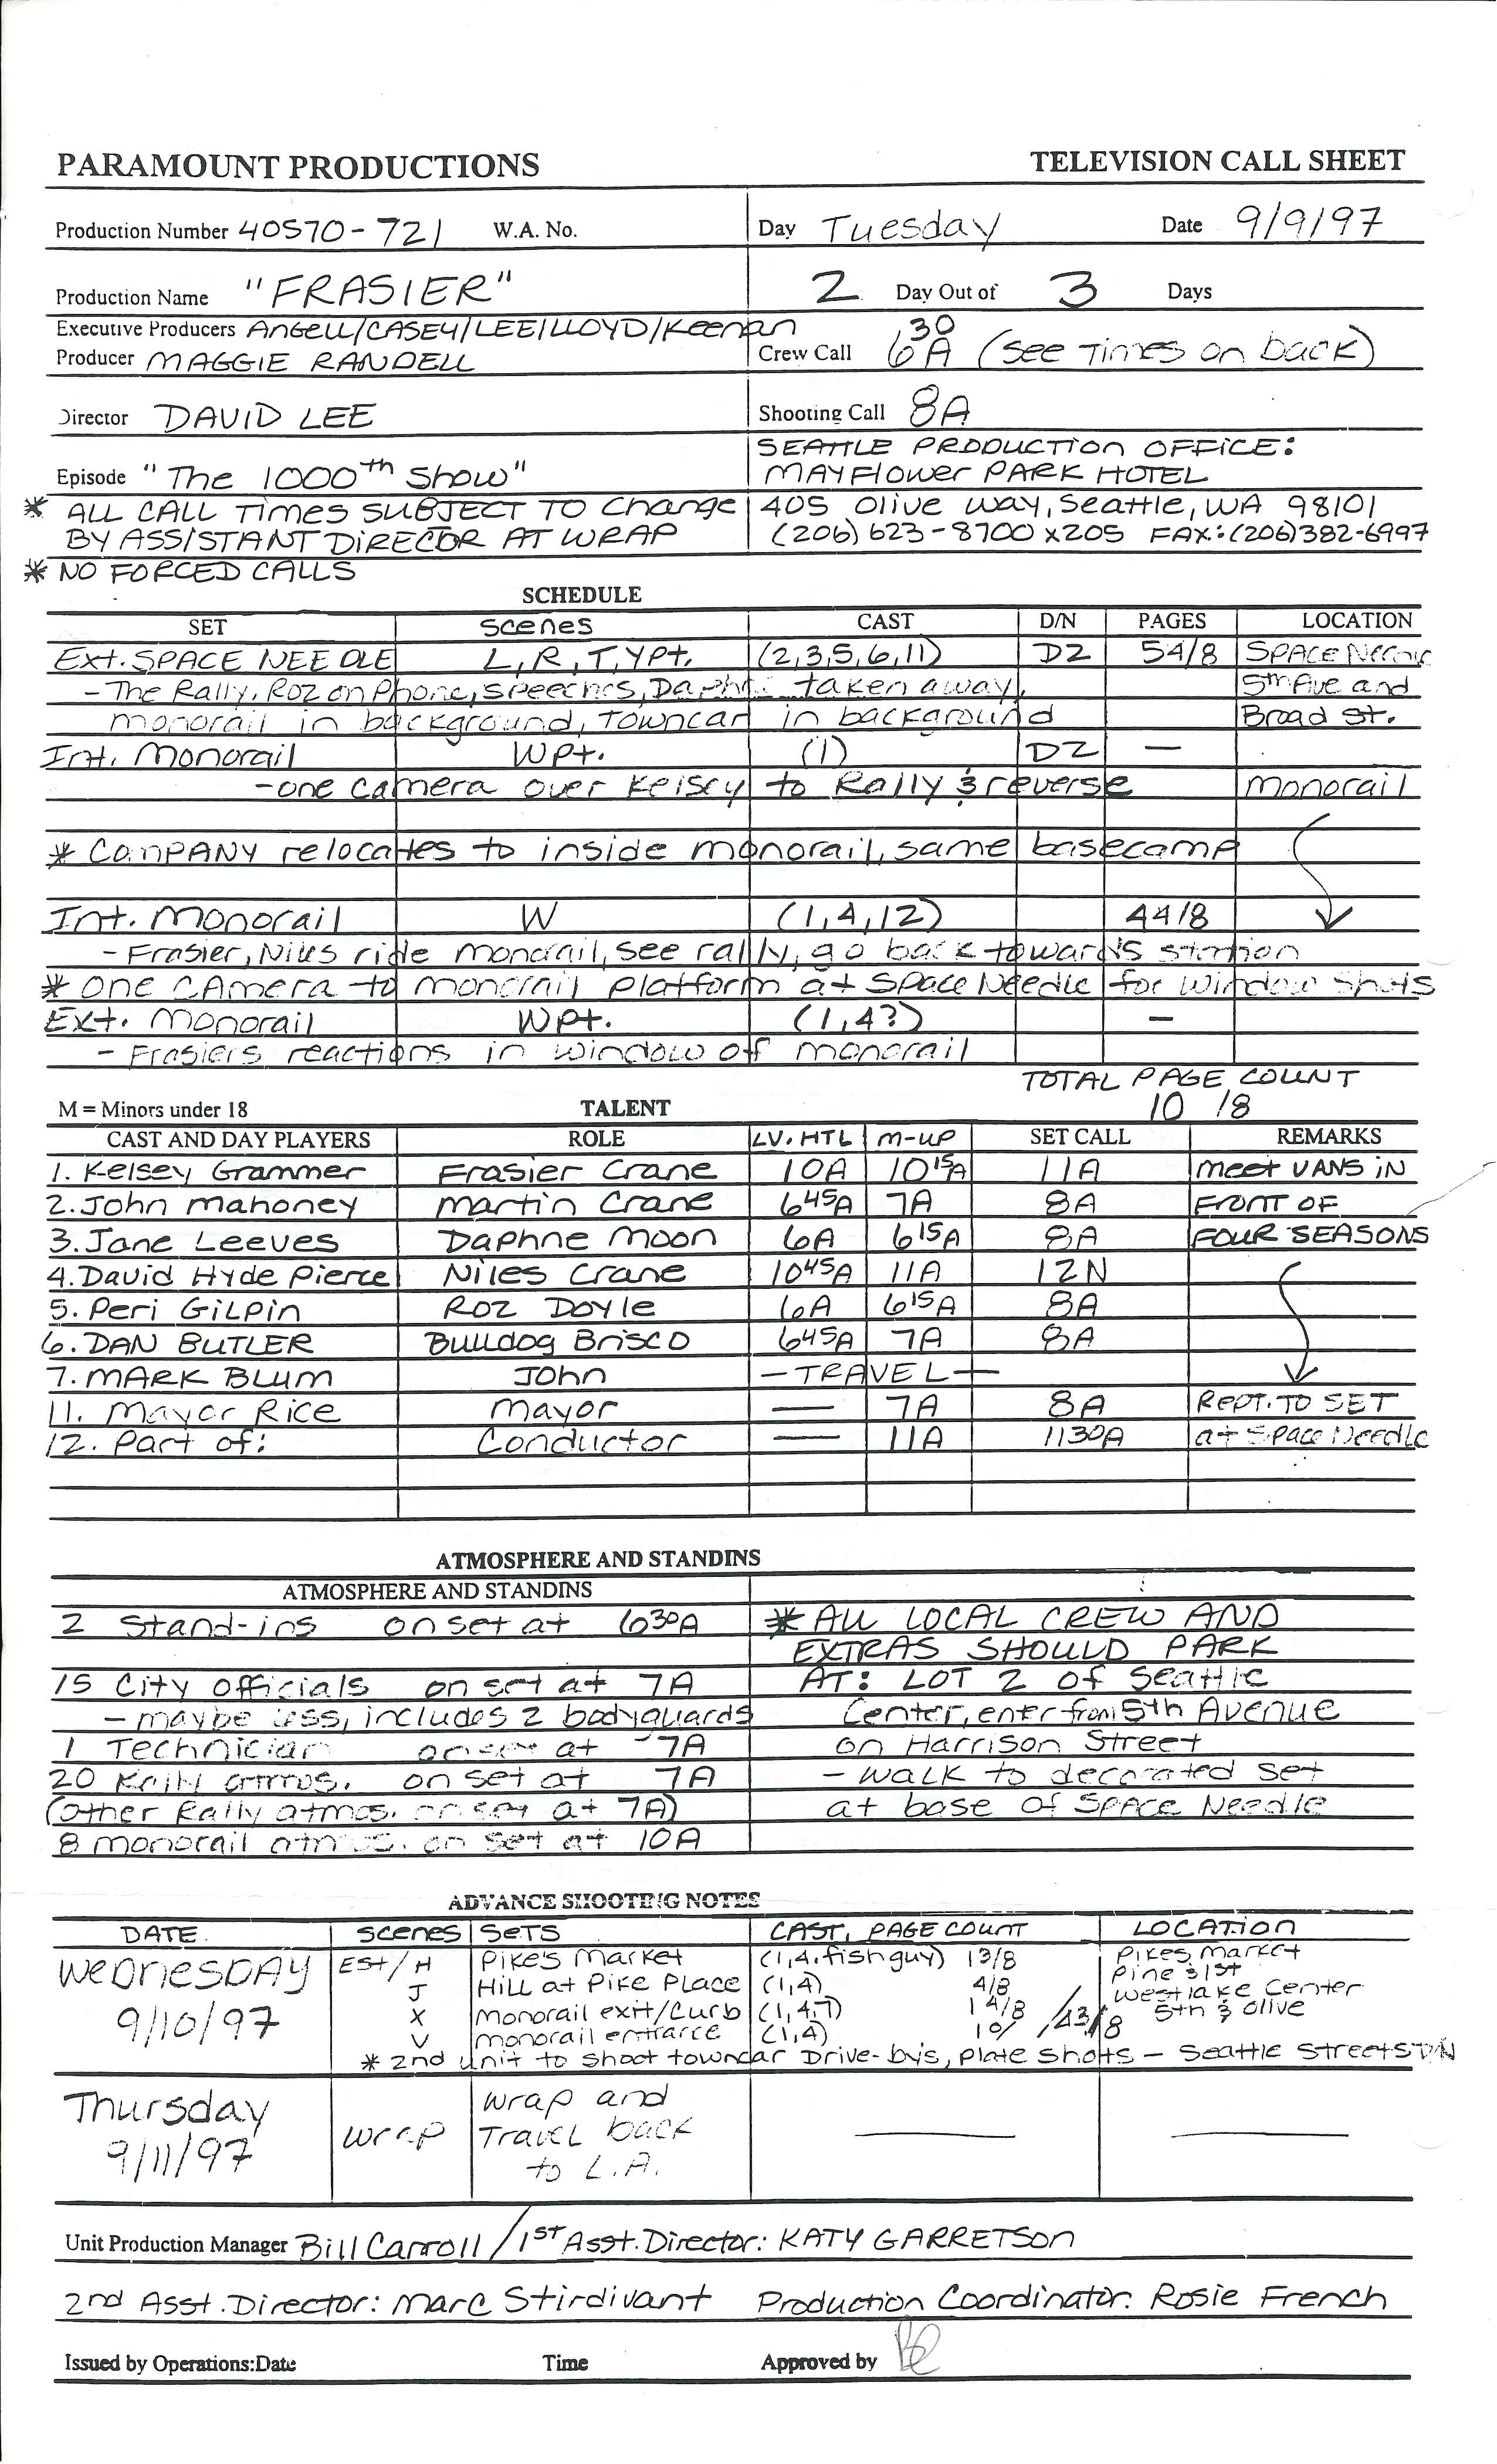 PARAMOUNT PRODUCTIONS TELEVISION CALL SHEET
Production Number 40570-721 W.A. No. Day Tuesday Date 9/9/97
Production Name "FRASIER" 2 Day Out of 3 Days
Executive Producers Angell/CASEY/LEE/LLOYD/Keenan
Producer MAGGIE RANDELL Crew Call 6 30 A (see Times on back)
Director DAVID LEE Shooting Call 8A
SEATTLE PRODUCTION OFFICE:
Episode "The 1000th Show" MAYFlower PARK HOTEL
* ALL CALL Times SUBJECT TO Change 405 Olive Way, Seattle, WA 98101
BY ASSISTANT DIRECTOR AT WRAP (206) 623-8700 x205 FAX: (206) 382-6997
* NO FORCED CALLS
SCHEDULE
SET Scenes CAST D/N PAGES LOCATION
Ext. SPACE NEEDLE L, R, T, Ypt. (2,3,5,6,11) D2 5 4/8 SPACE Needle
- The Rally, Roz on Phone, speeches, Daphne taken away, 5th Ave and
monorail in background, Towncar in background Broad St.
Int. Monorail Wpt. (1) D2 —
- one camera over Kelsey to Rally & reverse monorail
* COMPANY relocates to inside monorail, same basecamp
Int. Monorail W (1,4,12) 4 4/8
- Frasier, Niles ride monorail, see rally, go back towards station
* ONE CAMERA to monorail platform at Space Needle for window shots
Ext. Monorail Wpt. (1,4?) —
- Frasiers reactions in window of monorail
TOTAL PAGE COUNT
M = Minors under 18 TALENT 10 /8
CAST AND DAY PLAYERS ROLE LV. HTL M-UP SET CALL REMARKS
1. Kelsey Grammer Frasier Crane 10A 10 15 A 11A meet VANS IN
2. John Mahoney Martin Crane 6 45 A 7A 8A FRONT OF
3. Jane Leeves Daphne Moon 6A 6 15 A 8A FOUR SEASONS
4. David Hyde Pierce Niles Crane 10 45 A 11A 12N
5. Peri Gilpin Roz Doyle 6A 6 15 A 8A
6. DAN BUTLER Bulldog Brisco 6 45 A 7A 8A
7. MARK BLUM John — TRAVEL —
11. Mayor Rice Mayor — 7A 8A Rept. TO SET
12. Part of: Conductor — 11A 1130A at Space Needle
ATMOSPHERE AND STANDINS
ATMOSPHERE AND STANDINS
2 Stand-ins on set at 6 30 A * ALL LOCAL CREW AND
EXTRAS SHOULD PARK
15 City officials on set at 7A AT: LOT 2 of Seattle
- maybe less, includes 2 bodyguards Center, enter from 5th Avenue
1 Technician on set at 7A on Harrison Street
20 Rally atmos. on set at 7A - walk to decorated set
(other Rally atmos. on set at 7A) at base of Space Needle
8 monorail atmos. on set at 10A
ADVANCE SHOOTING NOTES
DATE Scenes SETS CAST, PAGE COUNT LOCATION
Wednesday 9/10/97 Est/H Pike's Market (1,4, fish guy) 13/8 Pikes Market
J Hill at Pike Place (1,4) 4/8 Pine & 1st
X Monorail exit/Curb (1,4,7) 1 4/8 Westlake Center
V monorail entrance (1,4) 5th & Olive
* 2nd unit to shoot towncar Drive-bys, plate shots - Seattle Streets D/N
Thursday 9/11/97 Wrap Wrap and
Travel back
to L.A.
Unit Production Manager Bill Carroll / 1ST Asst. Director: KATY GARRETSON
2nd Asst. Director: Marc Stirdivant Production Coordinator: Rosie French
Issued by Operations: Date Time Approved by